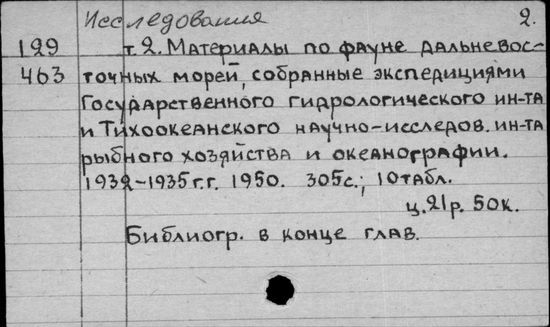 Исследования 2.
129 т. 2. Материалы по фауне дальневос-
463 точных морей, собранные экспедициями
Государственного гидрологического ин-та
и Тихоокеанского научно-исследов. ин-та
рыбного хозяйства и океанографии.
1932-1935 г.г. 1950. 305с.; 10 табл.
ц. 21р. 50к.
Библиогр. в конце глав.